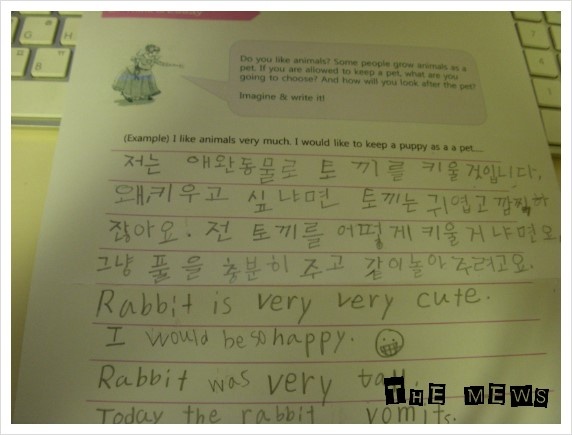 Do you like animals? Some people grow animals as a
pet. If you are allowed to keep a pet, what are you
going to choose? And how will you look after the pet?
Imagine & write it!
(Example) I like animals very much. I would like to keep a puppy as a a pet....
저는 애완동물로 토끼를 키울것입니다.
왜, 키우고 싶냐면 토끼는 귀엽고 깜찍하
잖아요! 전 토끼를 어떻게 키울거냐면요.
그냥 풀을 충분히 주고 같이놀아주려고요.
Rabbit is very very cute.
I would be so happy.
Rabbit was very tall.
Today the rabbit vomits.
THE MEWS